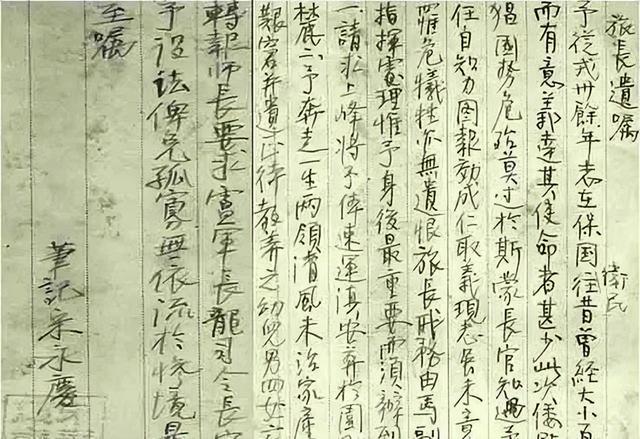 旅長遺囑
予從戎卅餘年志在保国往昔曾經大小百
衛民
而有意義達其使命者甚少此次倭
猖国勢危殆莫过於斯蒙長官知遇
任自知力图報効成仁取義現志
罹危犧牲亦無遺恨旅長職務由馬副
指揮處理惟予身後最重要而須辦到
一請求上峰將予俾速運滇安葬於園
二予奔走一生两領清風未治家產
艱窘并遺 待教养之幼兒男四女六
轉報師長要求盧軍長龍司令長官
予設法俾免孤寡無依流於惨境是
至囑
筆記宋永慶